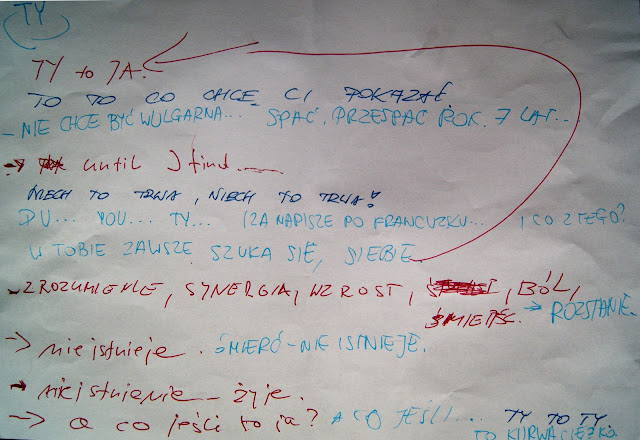 TY
TY to JA.
TO TO CO CHCĘ CI POKAZAĆ
- NIE CHCE BYĆ WULGARNA... SPAĆ, PRZESPAĆ ROK. 7 LAT...
→ until I find...
NIECH TO TRWA, NIECH TO TRWA!
DU... YOU... TY... IZA NAPISZE PO FRANCUZKU... I CO Z TEGO?
W TOBIE ZAWSZE SZUKA SIĘ, SIEBIE
- ZROZUMIENIE, SYNERGIA, WZROST, BÓL,
ŚMIERĆ. → ROZSTANIE
→ nie istnieje. ŚMIERĆ - NIE ISTNIEJE.
istnienie - żyje.
→ a co jeśli to ja? A CO JEŚLI... TY TO TY
TO KURWA CIĘŻKO